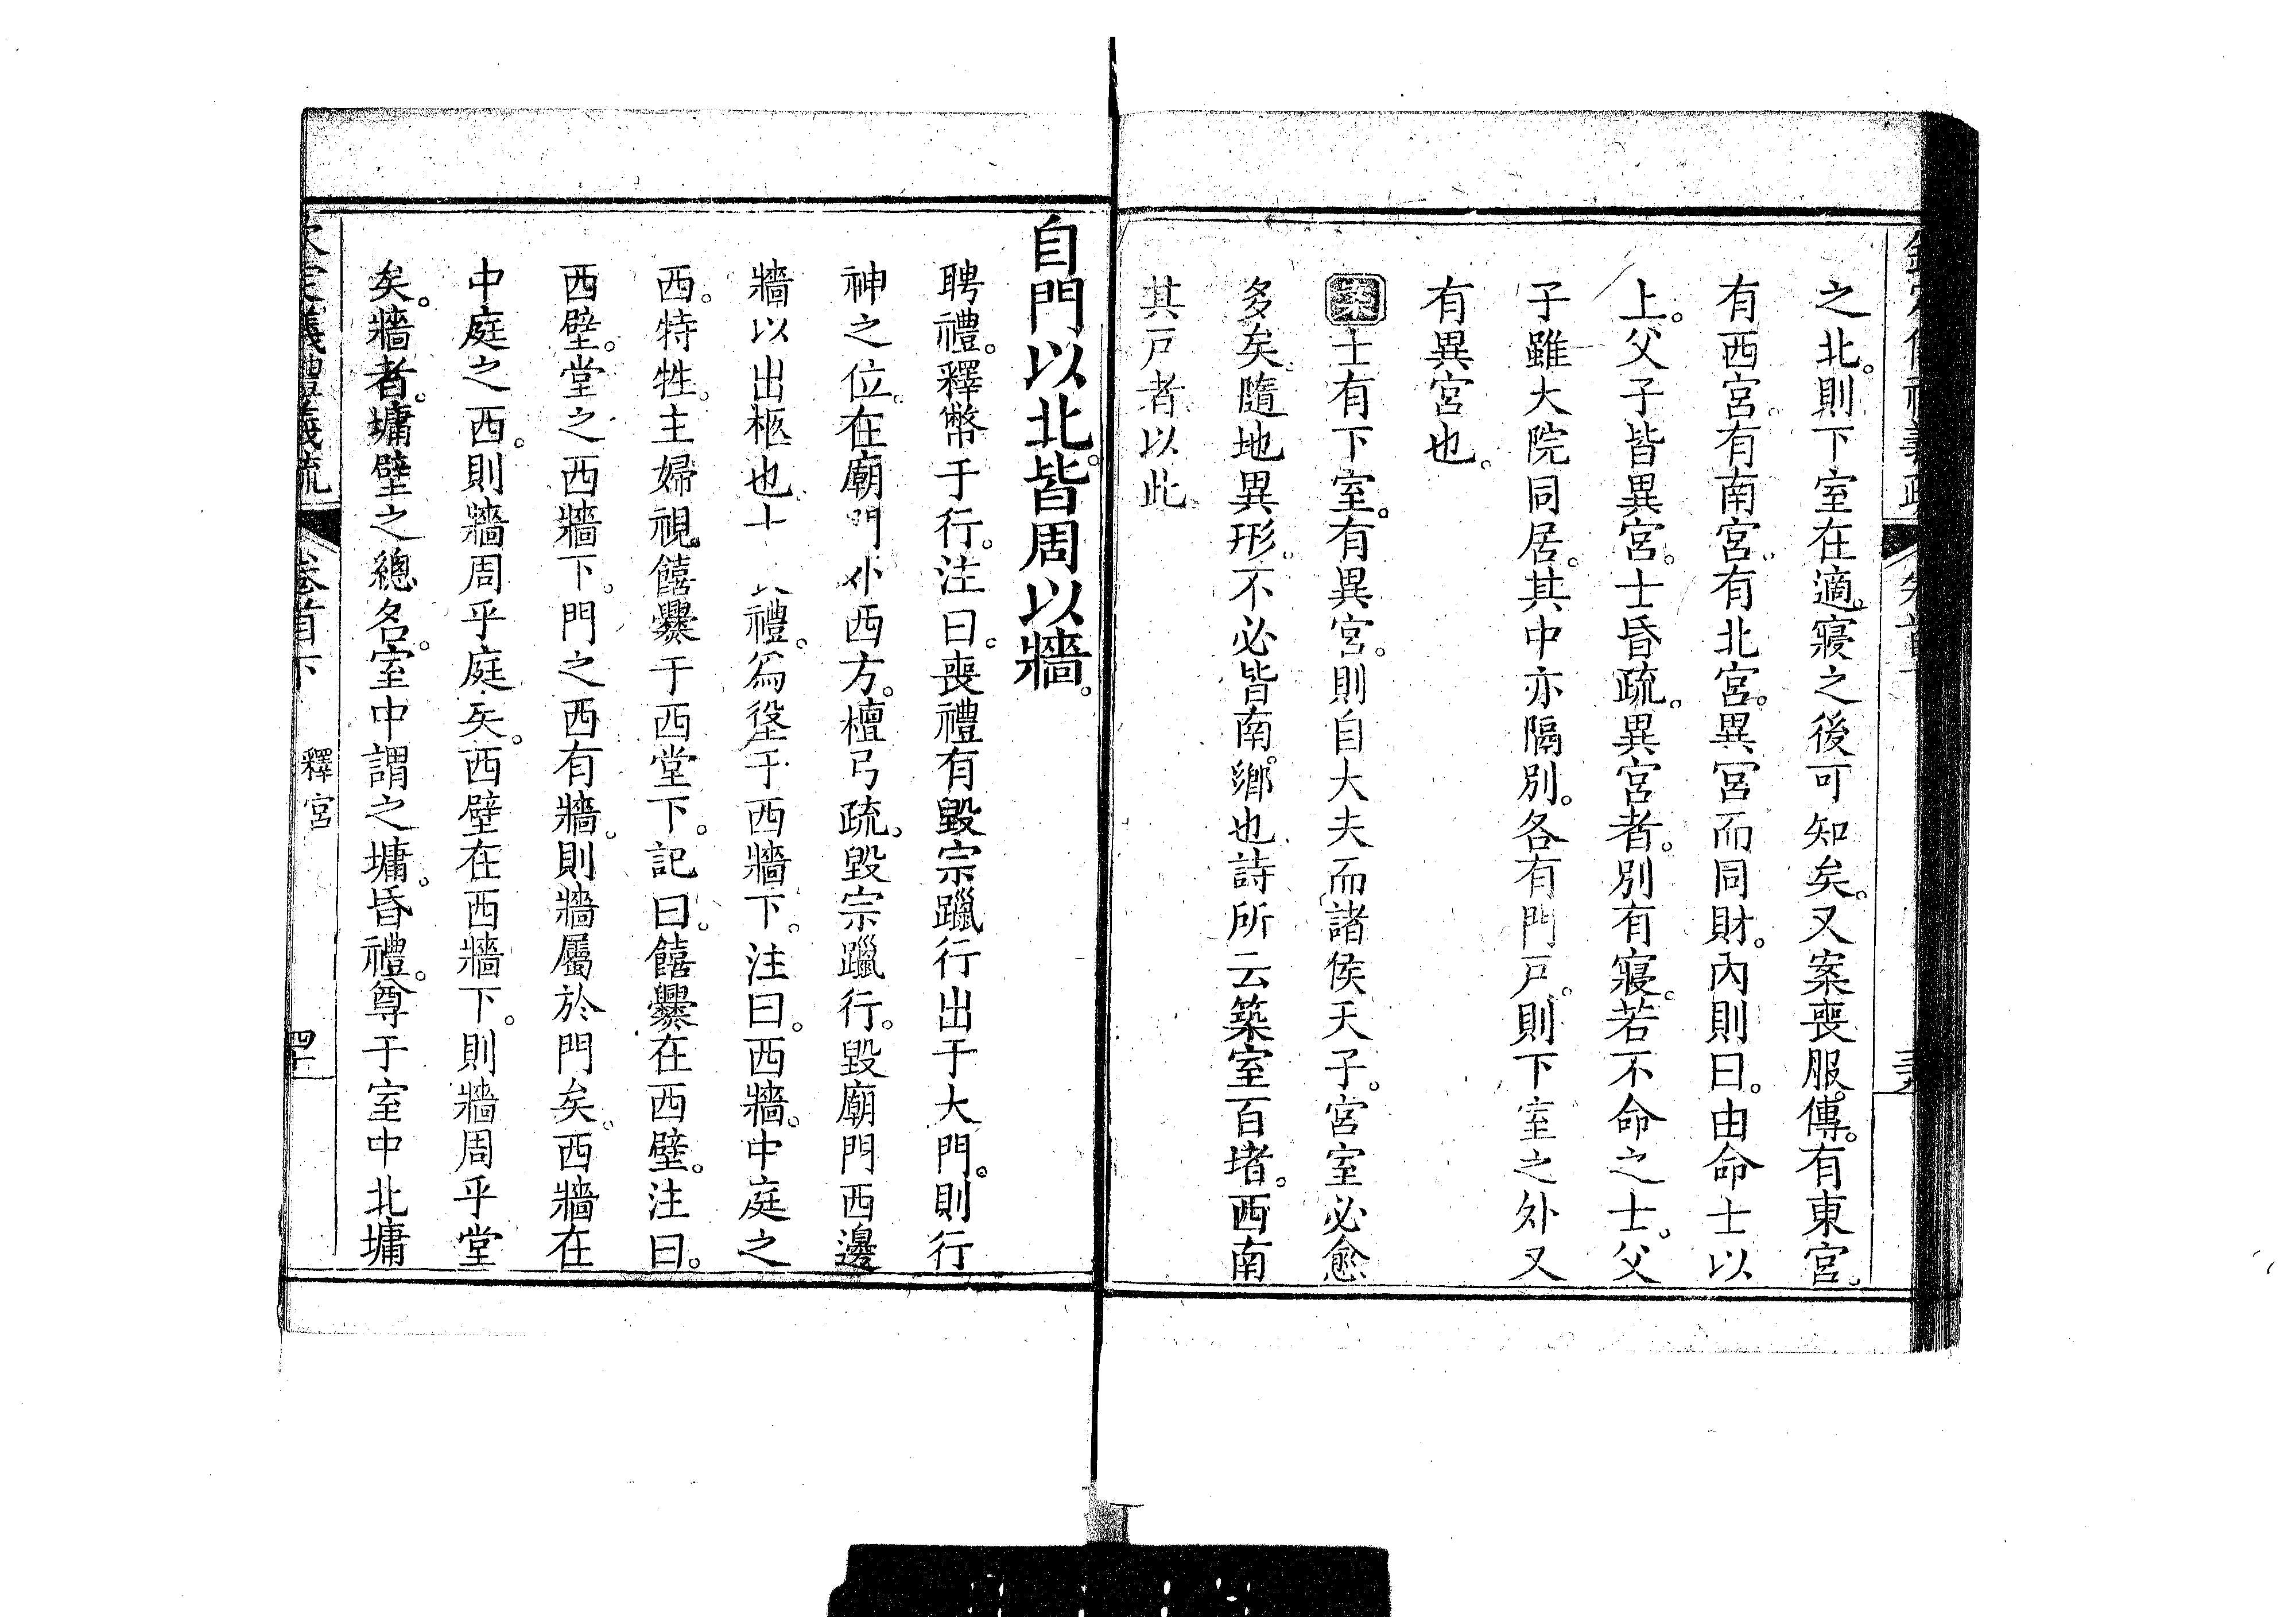 之北。則下室在適。寢之後可知矣。又案喪服。傳。有東宮。
有西宮。有南宮。有北宮。異宮而同財。內則曰。由命士以
上。父子皆異宮。士昏疏。異宮者。別有寢。若不命之士。父
子雖大院同居。其中亦隔別。各有門戶。則下室之外又
有異宮也。
案士有下室。有異宮。則自大夫而諸侯天子。宮室必愈
多矣。隨地異形。不必皆南鄉也。詩所云築室百堵。西南
其戶者以此
自門以北。皆周以牆。
聘禮。釋幣于行。注曰。喪禮有毀宗躐行出于大門。則行
神之位。在廟門外西方。檀弓疏。毀宗躐行。毀廟門西邊
牆以出柩也。士 禮。為垼于西牆下。注曰。西牆。中庭之
西。特牲。主婦視饎爨于西堂下。記曰。饎爨在西壁。注曰。
西壁。堂之西牆下。門之西有牆。則牆屬於門矣。西牆在
中庭之西。則牆周乎庭矣。西壁在西牆下。則牆周乎堂
矣。牆者。墉壁之總名。室中謂之墉。昏禮。尊于室中北墉
欽定儀禮義疏 卷首下 釋宮